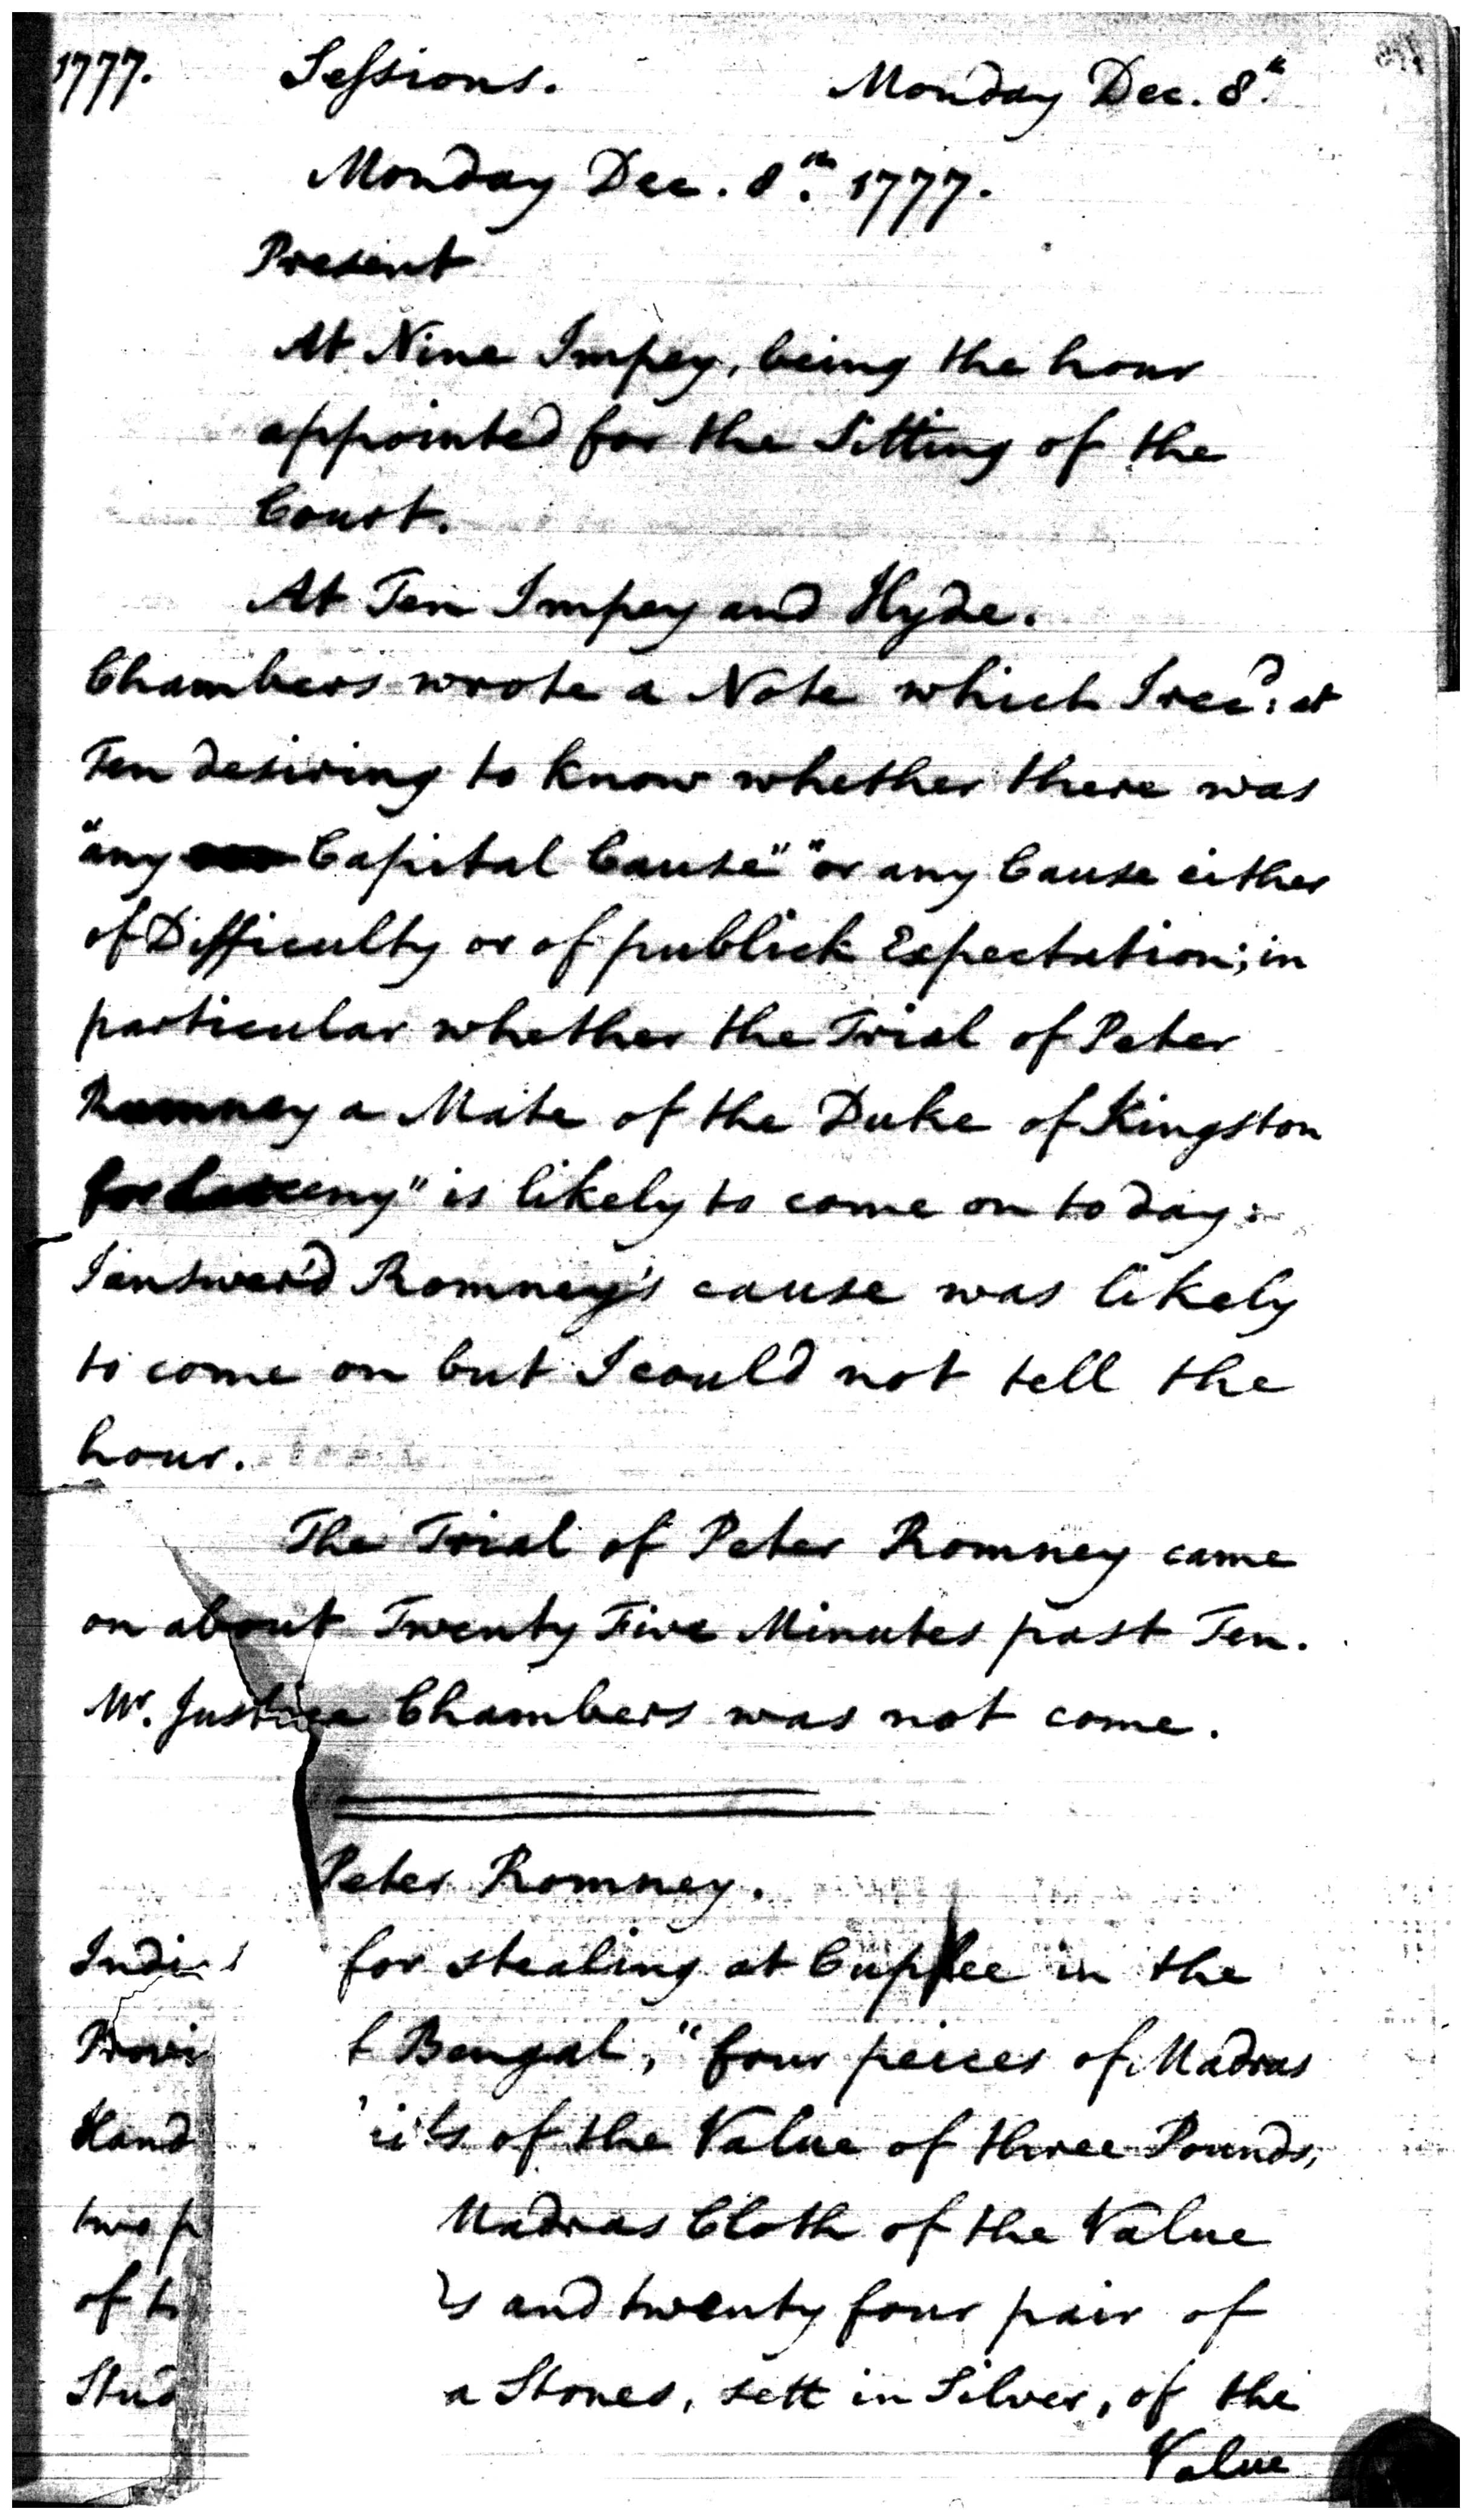 1777. Sessions. Monday Dec. 8th.
Monday Dec. 8th. 1777.
Present
At Nine Impey, being the hour
appointed for the Sitting of the
Court.
At Ten Impey and Hyde.
Chambers wrote a Note which I recd. at
Ten desiring to know whether there was
"any Capital Cause" "or any Cause either
of Difficulty or of publick Expectation; in
particular whether the Trial of Peter
Rumney a Mate of the Duke of Kingston
for Larceny" is likely to come on to day:
I answer'd Romney's cause was likely
to come on but I could not tell the
hour.
The Trial of Peter Romney came
on about Twenty Five Minutes past Ten.
Mr. Justice Chambers was not come.
Peter Romney.
Indic for stealing at Cuplee in the
Provi f Bengal, "four peices of Madras
Hand of the Value of three Pounds,
two p Madras Cloth of the Value
of t s and twenty four pair of
Stud a Stones, sett in Silver, of the
Value